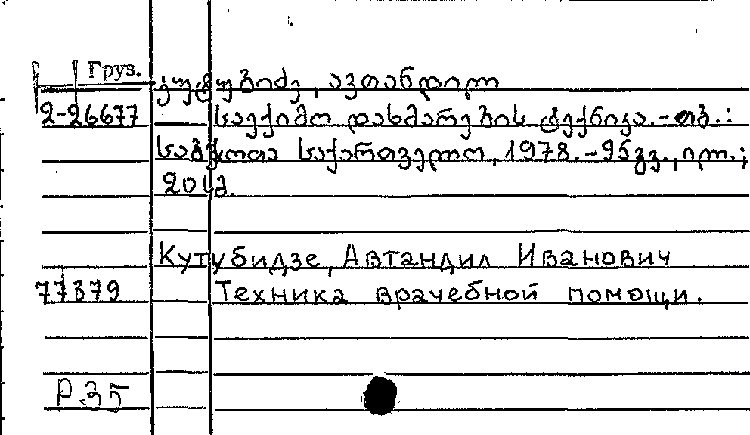 Груз. კუტუბიძე, ავთანდილ
2-26677 საექიმო დახმარების ტექნიკა. - თბ.:
საბჭოთა საქართველო, 1978. - 95გვ., ილ.;
20სმ.
Кутубидзе, Автандил Иванович
77379 Техника врачебной помощи.
P.35